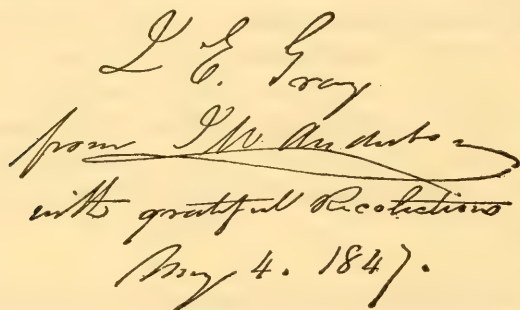 J. E. Gray
from J. W. Audubon
with grateful Recolections
May 4. 1847.